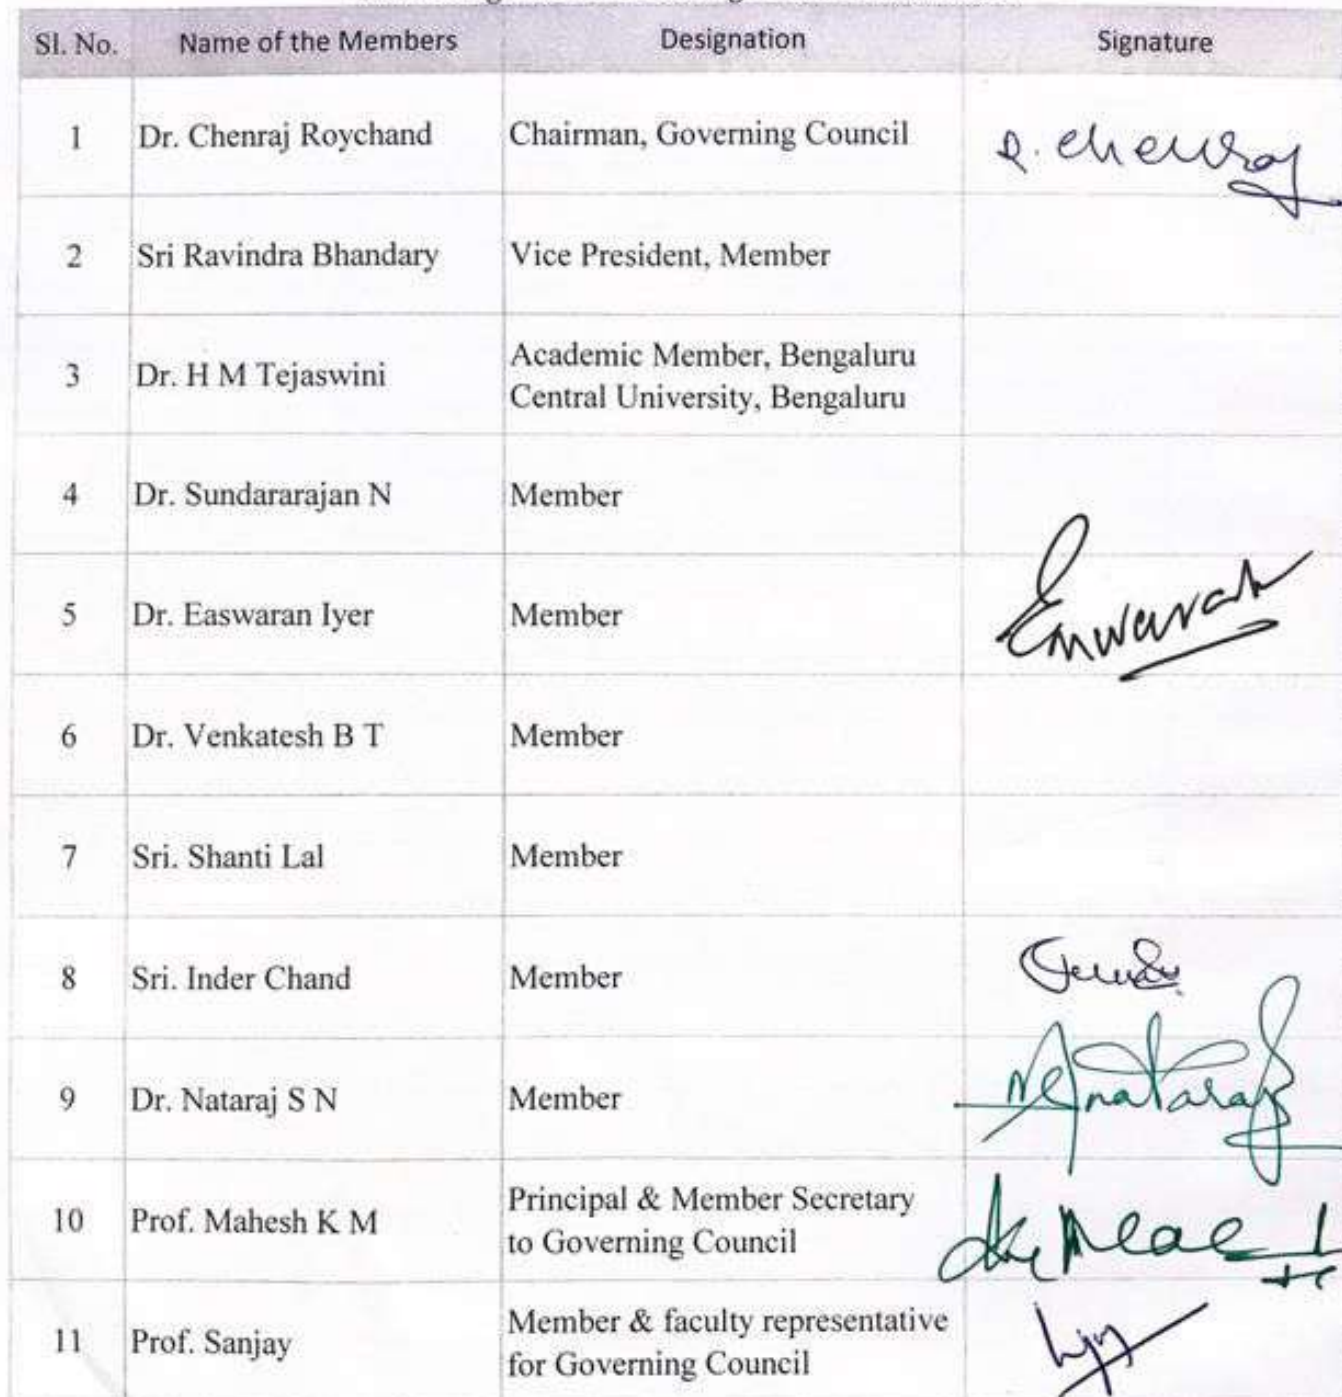 Sl. No. Name of the Members Designation Signature
1 Dr. Chenraj Roychand Chairman, Governing Council R. Chenraj
2 Sri Ravindra Bhandary Vice President, Member
3 Dr. H M Tejaswini Academic Member, Bengaluru
Central University, Bengaluru
4 Dr. Sundararajan N Member
5 Dr. Easwaran Iyer Member
6 Dr. Venkatesh B T Member
7 Sri. Shanti Lal Member
8 Sri. Inder Chand Member
9 Dr. Nataraj S N Member
10 Prof. Mahesh K M Principal & Member Secretary
to Governing Council
11 Prof. Sanjay Member & faculty representative
for Governing Council